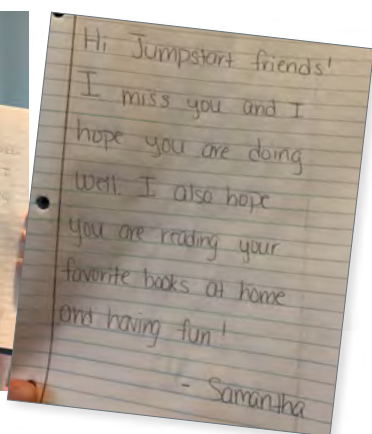 Hi Jumpstart friends!
I miss you and I
hope you are doing
well. I also hope
you are reading your
favorite books at home
and having fun!
- Samantha